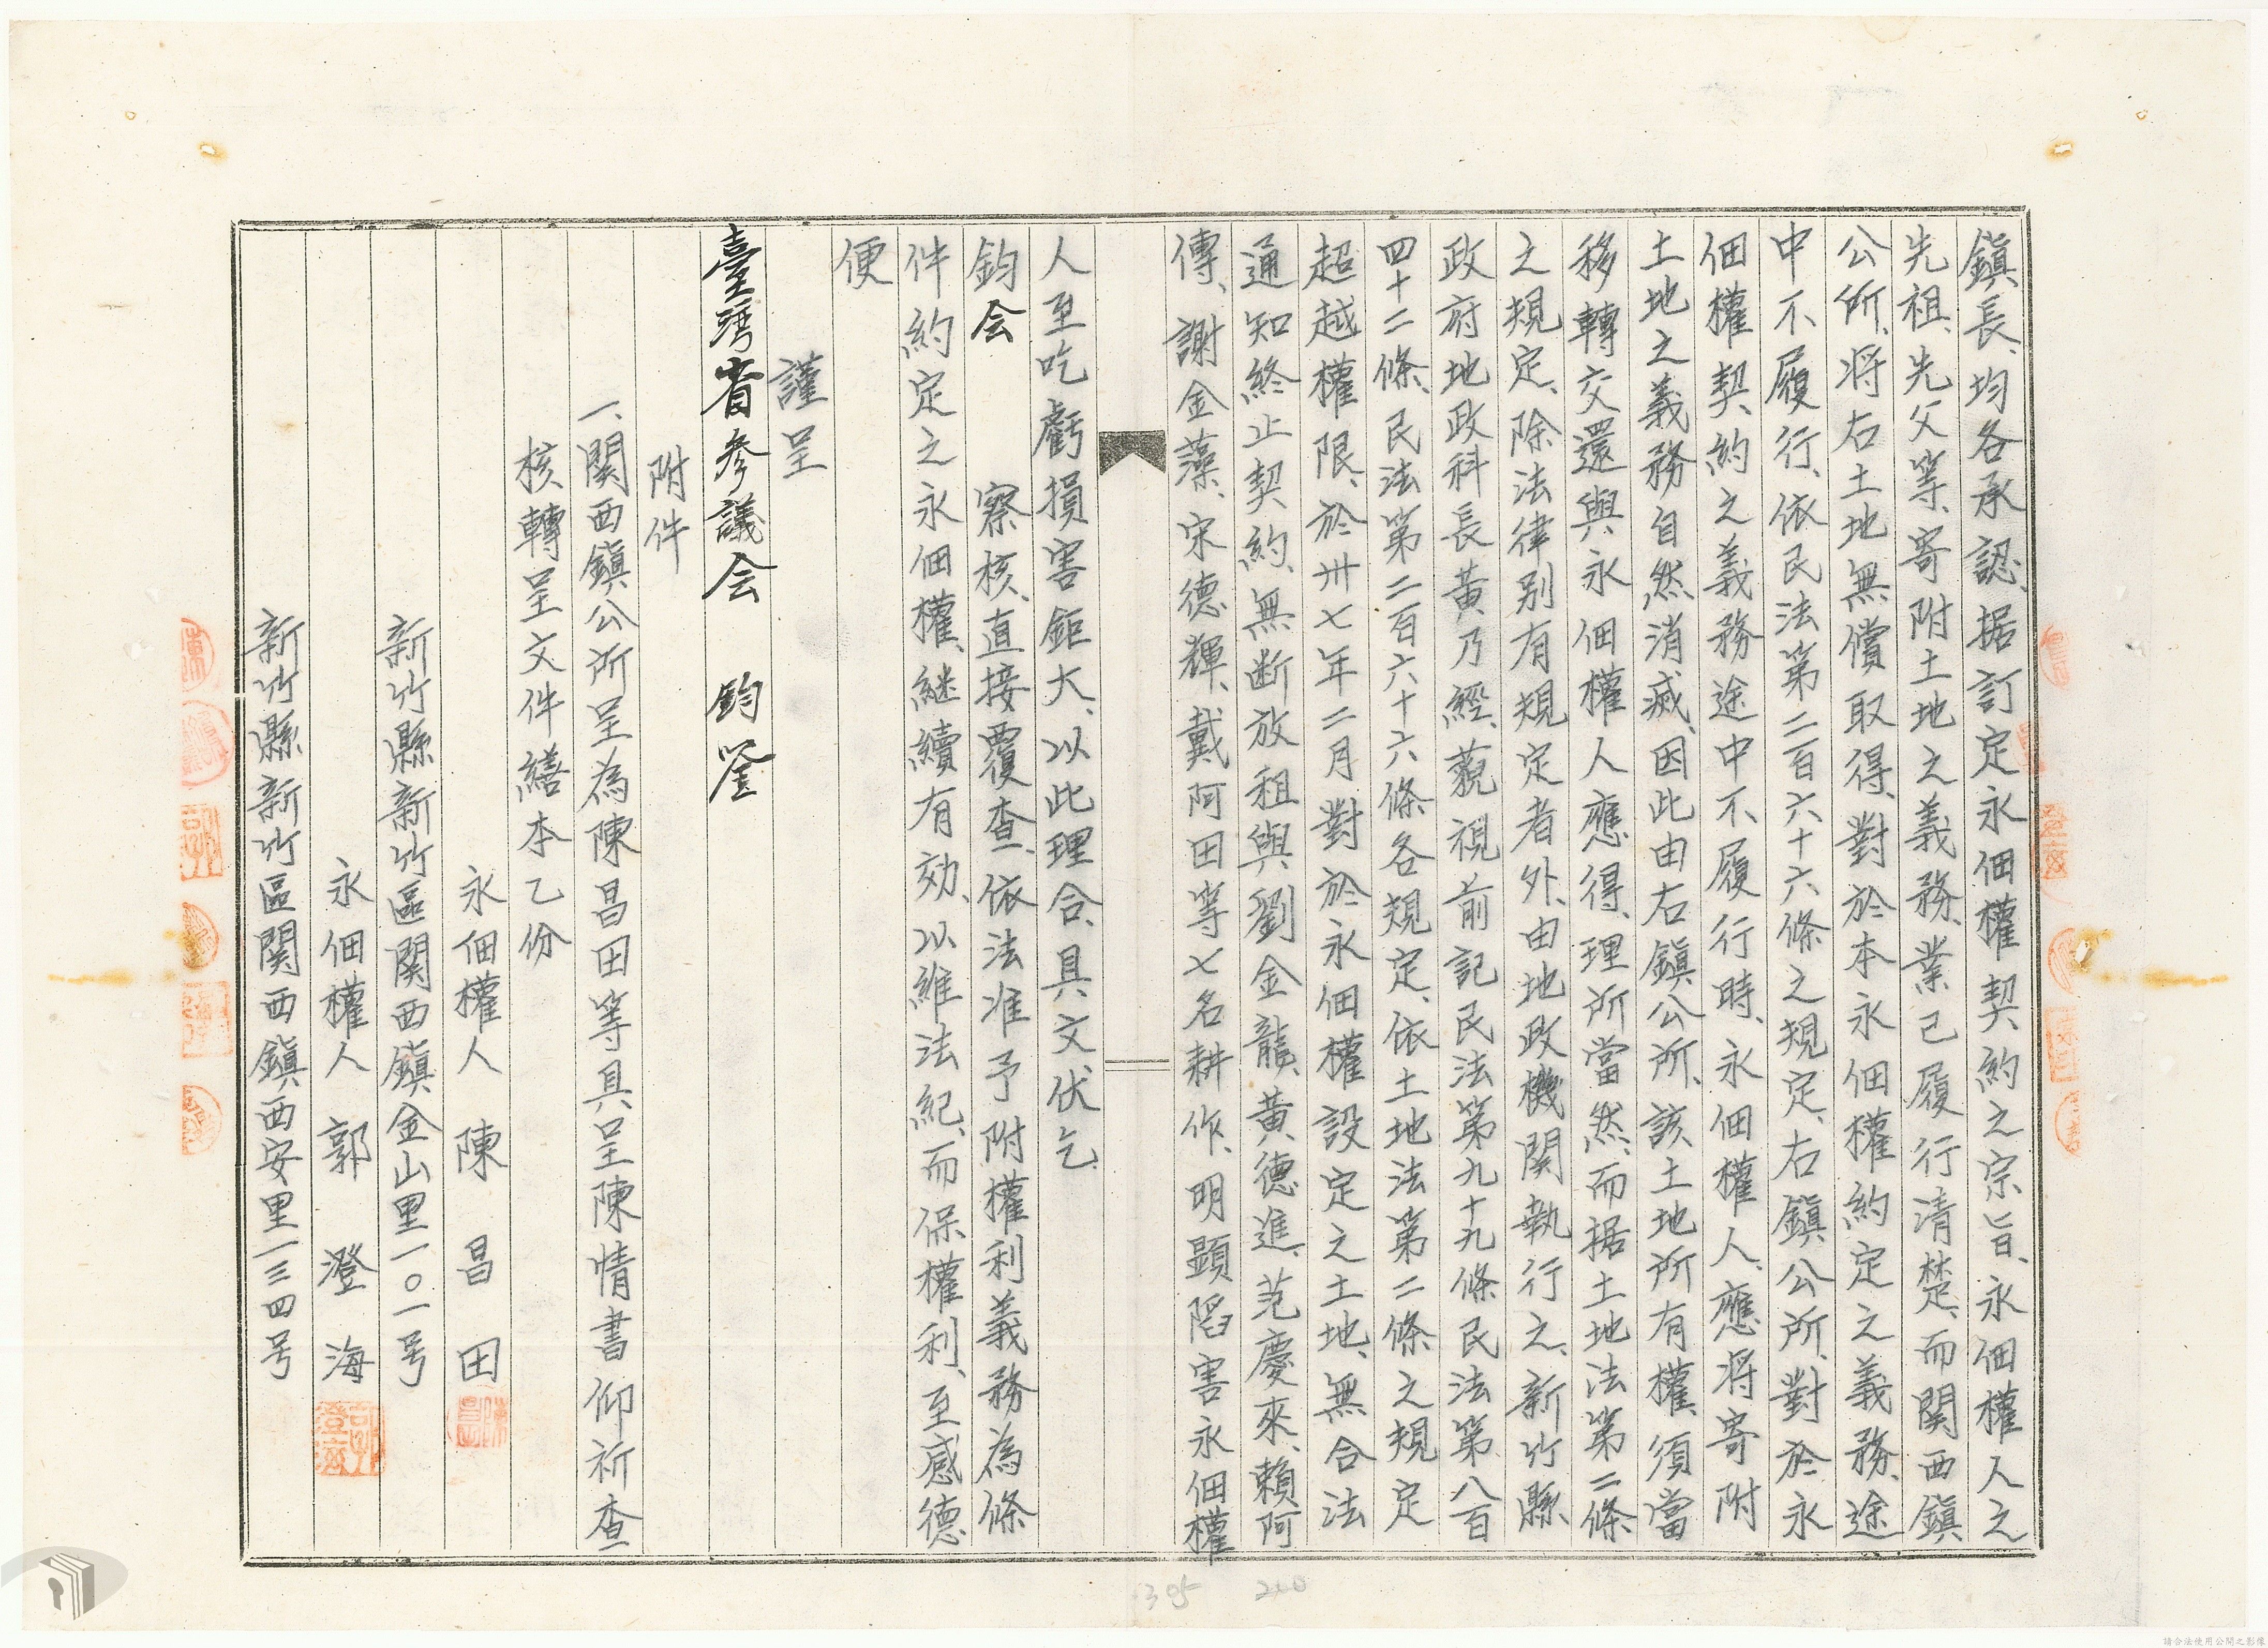 鎮長、均各承認、据訂定永佃權契約之宗旨、永佃權人之
先祖、先父等、寄附土地之義務、業已履行清楚、而関西鎮
公所、将右土地無償取得、對於本永佃權約定之義務、途
中不履行、依民法第二百六十六條之規定、右鎮公所、對於永
佃權契約之義務途中不履行時、永佃權人、應将寄附
土地之義務自然消滅、因此由右鎮公所、該土地所有權、須當
移轉交還與永佃權人應得、理所當然、而据土地法第二條
之規定、除法律别有規定者外、由地政機関執行之、新竹縣
政府地政科長黃乃經、藐視前記民法第九十九條民法第八百
四十二條、民法第二百六十六條各規定、依土地法第二條之規定
超越權限、於卅七年二月對於永佃權設定之土地、無合法
通知終止契約、無断放租與劉金龍、黃德進、范慶來、賴阿
傳、謝金藻、宋德輝、戴阿田等七名耕作、明顕陷害永佃權
人至吃虧損害鉅大、以此理合、具文伏乞
鈞会 察核、直接覆查、依法准予附權利義務為條
件約定之永佃權、継續有効、以維法紀、而保權利、至感德
便
謹呈
臺湾省参議会 鈞鉴
附件
一、関西鎮公所呈為陳昌田等具呈陳情書仰祈查
核轉呈文件繕本乙份
永佃權人 陳昌田
新竹縣新竹區関西鎮金山里一〇一号
永佃權人 郭澄海
新竹縣新竹區関西鎮西安里一三四号
305 240
請合法使用公開之影像